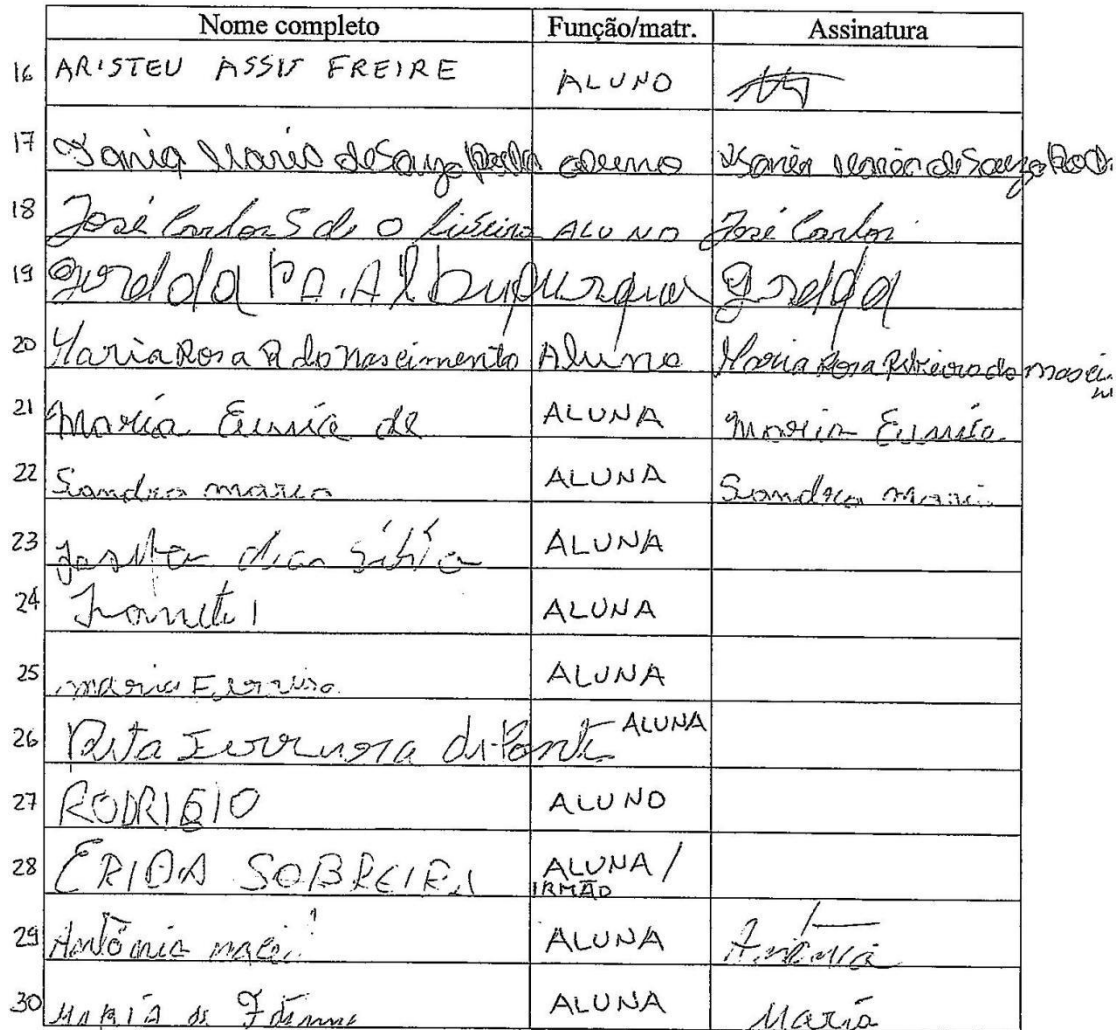 Nome completo Função/matr. Assinatura
16 ARISTEU ASSIS FREIRE ALUNO
17 Tania Maria de Souza aluno Tania Maria de Souza
18 José Carlos S de O ALUNO José Carlos
19 P.A. Albuquerque
20 Maria Rosa R do Nascimento Aluna Maria Rosa Ribeiro do Nasci
21 Maria Eunice de ALUNA Maria Eunice
22 Sandra Maria ALUNA Sandra Mari
23 ALUNA
24 ALUNA
25 Maria Ferreira ALUNA
26 Rita Ferreira di Ponte ALUNA
27 RODRIGO ALUNO
28 SOBREIRA ALUNA / IRMÃO
29 Antônia ALUNA Antonia
30 MARIA de ALUNA Maria